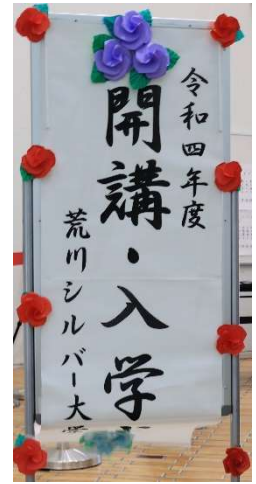 令和四年度
開講・入学
荒川シルバー大